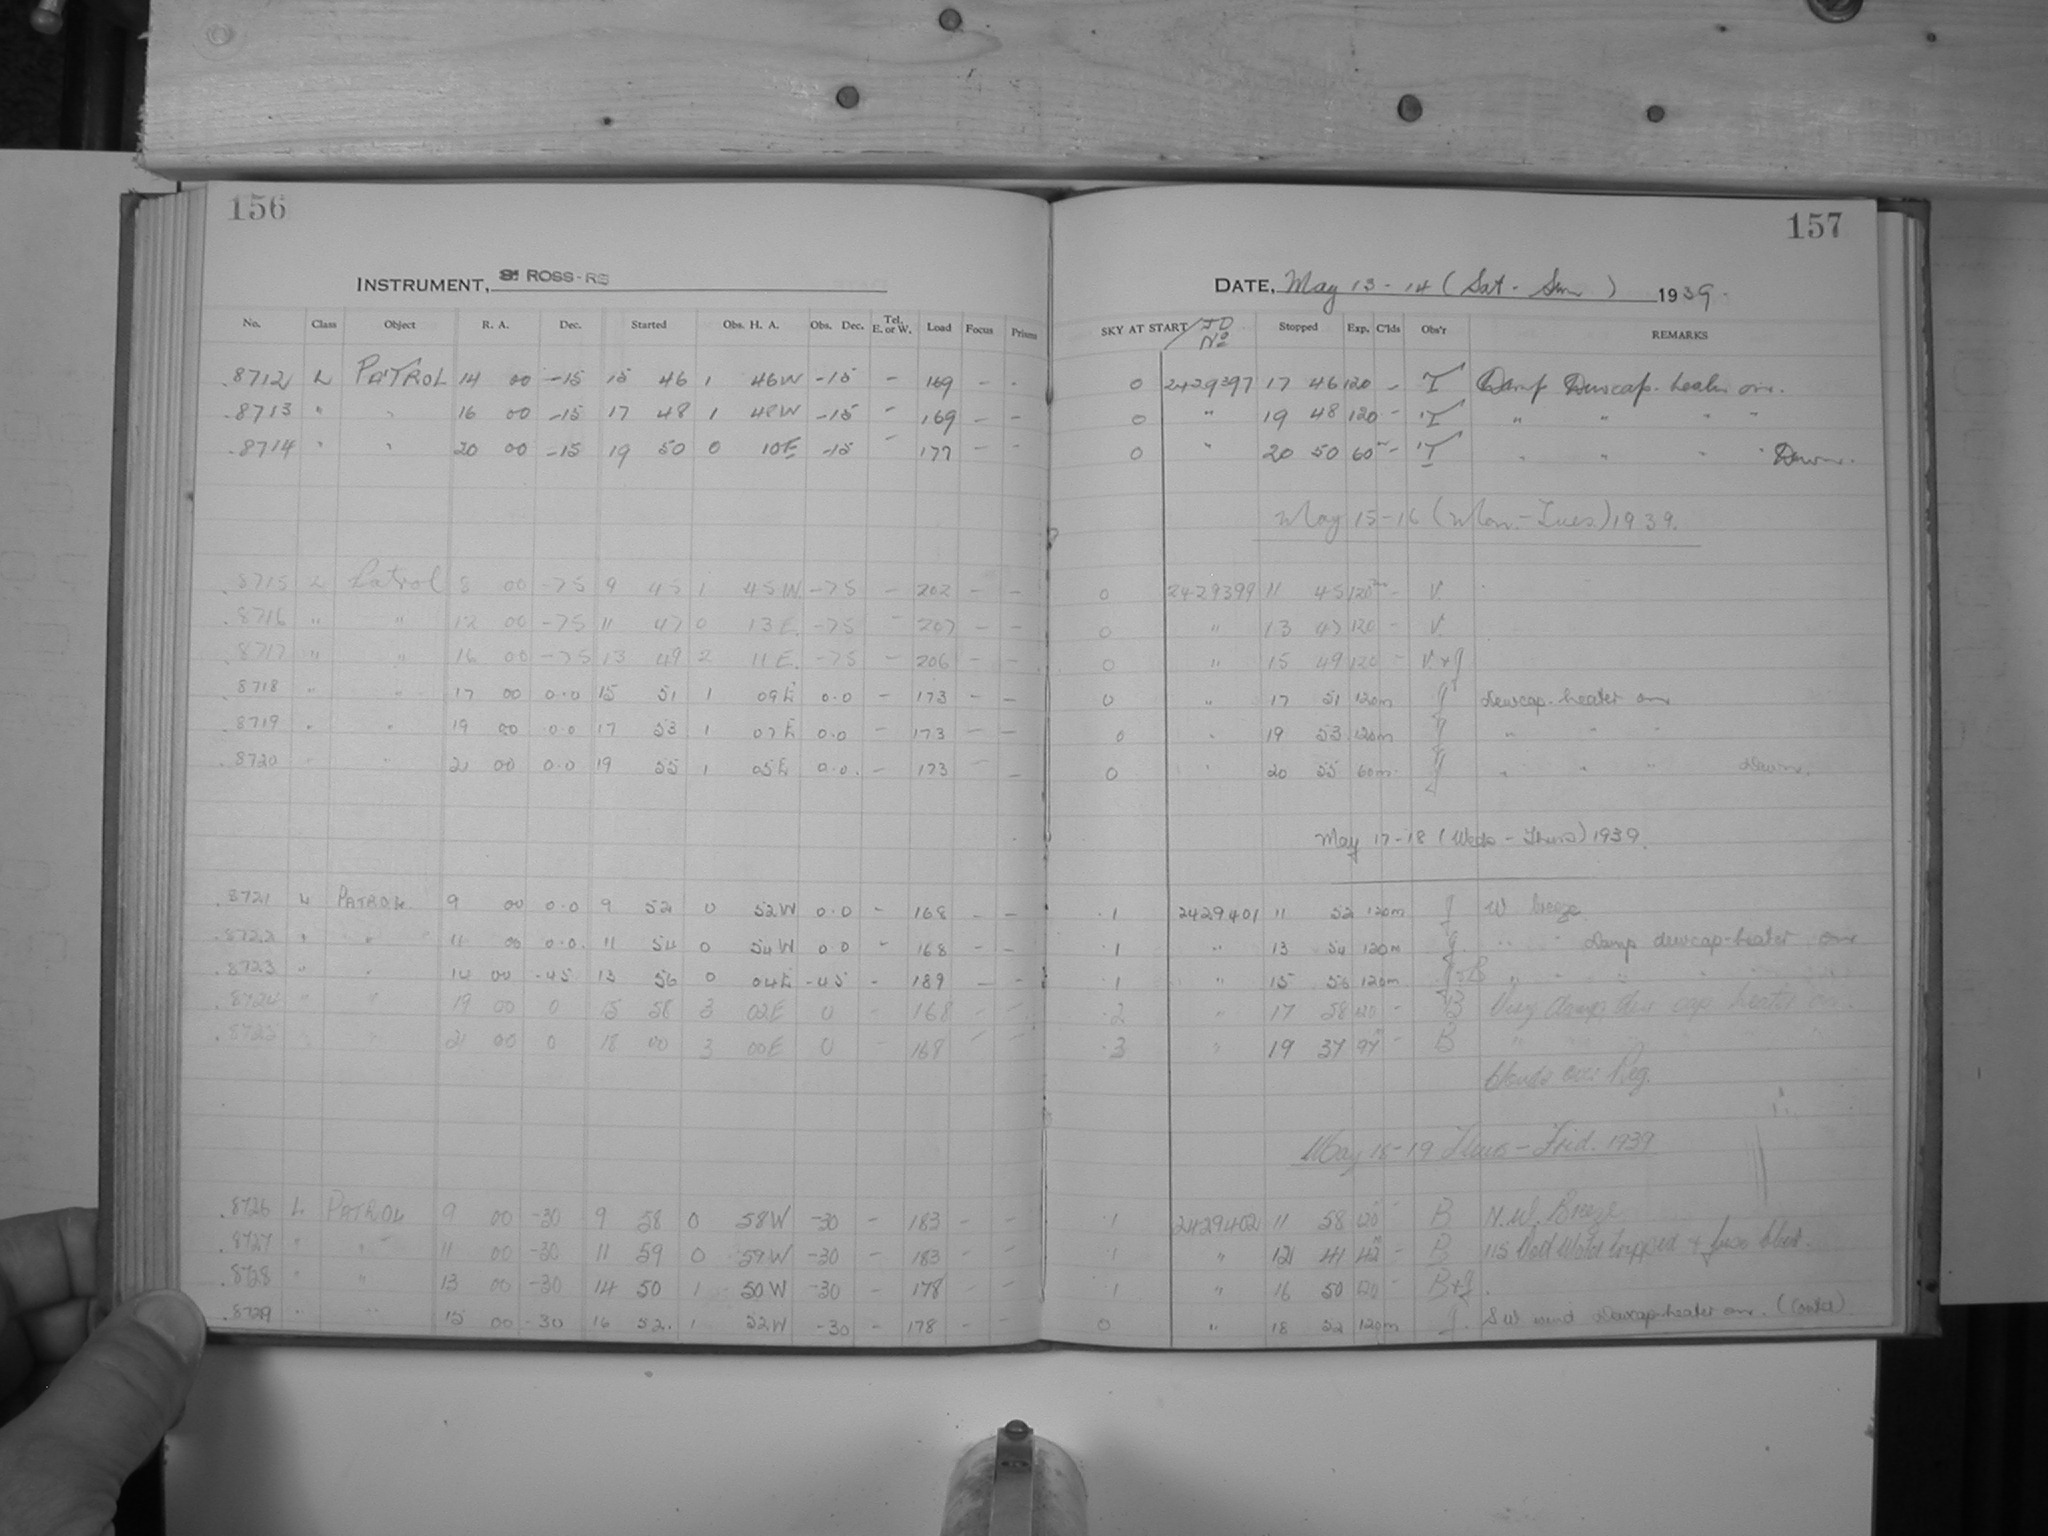 156
INSTRUMENT, ROSS-RS
No. Class Object R. A. Dec. Started Obs. H. A. Obs. Dec. Tel. E. or W. Load Focus Prisms
8712 L PATROL 14 00 -15 15 46 1 46W -15 - 169 - -
8713 " " 16 00 -15 17 48 1 48W -15 - 169 - -
8714 " " 20 00 -15 19 50 0 10E -15 - 177 - -
8715 L Patrol 8 00 -75 9 45 1 45W -75 - 202 - -
8716 " " 12 00 -75 11 47 0 13E. -75 - 207 - -
8717 " " 16 00 -75 13 49 2 11E. -75 - 206 - -
8718 " " 17 00 0.0 15 51 1 09E 0.0 - 173 - -
8719 " " 19 00 0.0 17 53 1 07E 0.0 - 173 - -
8720 " " 21 00 0.0 19 55 1 05E 0.0. - 173 - -
8721 L PATROL 9 00 0.0 9 52 0 52W 0.0 - 168 - -
8722 " " 11 00 0.0. 11 54 0 54W 0.0 - 168 - -
8723 " " 14 00 -45 13 56 0 04E -45 - 189 - -
8724 " " 19 00 0 15 58 3 02E 0 - 168 - -
8725 " " 21 00 0 18 00 3 00E 0 - 168 - -
8726 L PATROL 9 00 -30 9 58 0 58W -30 - 183 - -
8727 " " 11 00 -30 11 59 0 59W -30 - 183 - -
8728 " " 13 00 -30 14 50 1 50W -30 - 178 - -
8729 " " 15 00 -30 16 52. 1 52W -30 - 178 - -
157
DATE, May 13-14 (Sat - Sun) 1939.
SKY AT START / JD No Stopped Exp. C'lds Obs'r REMARKS
0 2429397 17 46 120 - T Damp Dewcap-heater on.
0 " 19 48 120 - T " " " "
0 " 20 50 60m - T " " " " Dawn.
May 15-16 (Mon.-Tues) 1939.
0 2429399 11 45 120m - V
0 " 13 47 120 - V.
0 " 15 49 120 - V + J
0 " 17 51 120m J dewcap-heater on
0 " 19 53 120m J " " "
0 " 20 55 60m. J " " " Dawn.
May 17-18 (Weds - Thurs) 1939.
.1 2429401 11 52 120m J W breeze
.1 " 13 54 120m J. " " Damp dewcap-heater on
.1 " 15 56 120m J+B " " "
.2 " 17 58 120 - B Very damp, dew cap heater on.
.3 " 19 37 97m - B "
Clouds over Reg.
May 18-19 Thurs - Frid. 1939
.1 2429402 11 58 120 B N.W. Breeze
.1 " 12 41 42m - B 115 Volt Motor tripped + fuse blew.
.1 " 16 50 120 - B+J.
0 " 18 52 120m J. SW wind Dewcap-heater on. (Contd)